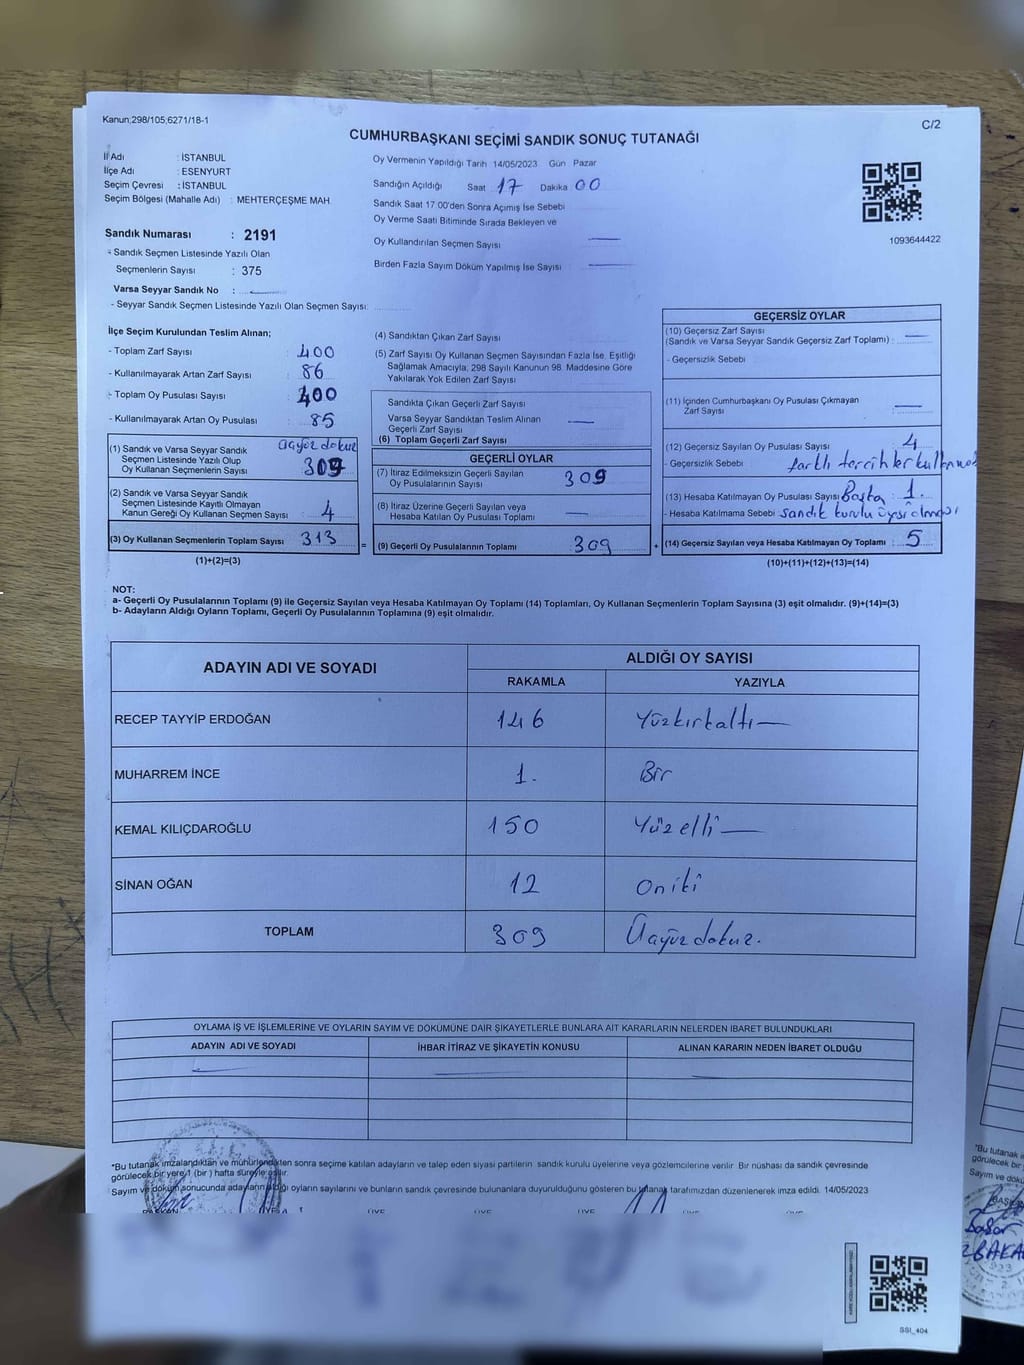 Kanun;298/105;6271/18-1
C/2
CUMHURBAŞKANI SEÇİMİ SANDIK SONUÇ TUTANAĞI
İl Adı : İSTANBUL
İlçe Adı : ESENYURT
Seçim Çevresi : İSTANBUL
Seçim Bölgesi (Mahalle Adı) : MEHTERÇEŞME MAH.
Sandık Numarası : 2191
- Sandık Seçmen Listesinde Yazılı Olan
Seçmenlerin Sayısı : 375
Varsa Seyyar Sandık No :
- Seyyar Sandık Seçmen Listesinde Yazılı Olan Seçmen Sayısı:
Oy Vermenin Yapıldığı Tarih 14/05/2023 Gün Pazar
Sandığın Açıldığı Saat 17 Dakika 00
Sandık Saat 17 00'den Sonra Açımış İse Sebebi
Oy Verme Saati Bitiminde Sırada Bekleyen ve
Oy Kullandırılan Seçmen Sayısı
Birden Fazla Sayım Döküm Yapılmış İse Sayısı
1093644422
İlçe Seçim Kurulundan Teslim Alınan;
- Toplam Zarf Sayısı : 400
- Kullanılmayarak Artan Zarf Sayısı : 86
- Toplam Oy Pusulası Sayısı : 400
- Kullanılmayarak Artan Oy Pusulası : 85
(1) Sandık ve Varsa Seyyar Sandık
Seçmen Listesinde Yazılı Olup
Oy Kullanan Seçmenlerin Sayısı : 309
(2) Sandık ve Varsa Seyyar Sandık
Seçmen Listesinde Kayıtlı Olmayan
Kanun Gereği Oy Kullanan Seçmen Sayısı : 4
(3) Oy Kullanan Seçmenlerin Toplam Sayısı : 313
(1)+(2)=(3)
(4) Sandıktan Çıkan Zarf Sayısı
(5) Zarf Sayısı Oy Kullanan Seçmen Sayısından Fazla İse, Eşitliği
Sağlamak Amacıyla, 298 Sayılı Kanunun 98. Maddesine Göre
Yakılarak Yok Edilen Zarf Sayısı
Sandıkta Çıkan Geçerli Zarf Sayısı
Varsa Seyyar Sandıktan Teslim Alınan
Geçerli Zarf Sayısı
(6) Toplam Geçerli Zarf Sayısı
GEÇERLİ OYLAR
(7) İtiraz Edilmeksizin Geçerli Sayılan
Oy Pusulalarının Sayısı : 309
(8) İtiraz Üzerine Geçerli Sayılan veya
Hesaba Katılan Oy Pusulası Toplamı
= (9) Geçerli Oy Pusulalarının Toplamı : 309 +
GEÇERSİZ OYLAR
(10) Geçersiz Zarf Sayısı
(Sandık ve Varsa Seyyar Sandık Geçersiz Zarf Toplamı) :
- Geçersizlik Sebebi
(11) İçinden Cumhurbaşkanı Oy Pusulası Çıkmayan
Zarf Sayısı
(12) Geçersiz Sayılan Oy Pusulası Sayısı : 4
- Geçersizlik Sebebi farklı tercihler
(13) Hesaba Katılmayan Oy Pusulası Sayısı Başka 1.
- Hesaba Katılmama Sebebi sandık kurulu üyesi olması
(14) Geçersiz Sayılan veya Hesaba Katılmayan Oy Toplamı : 5
(10)+(11)+(12)+(13)=(14)
NOT:
a- Geçerli Oy Pusulalarının Toplamı (9) ile Geçersiz Sayılan veya Hesaba Katılmayan Oy Toplamı (14) Toplamları, Oy Kullanan Seçmenlerin Toplam Sayısına (3) eşit olmalıdır. (9)+(14)=(3)
b- Adayların Aldığı Oyların Toplamı, Geçerli Oy Pusulalarının Toplamına (9) eşit olmalıdır.
ADAYIN ADI VE SOYADI
ALDIĞI OY SAYISI
RAKAMLA YAZIYLA
RECEP TAYYİP ERDOĞAN 146 Yüzkırkaltı
MUHARREM İNCE 1. Bir
KEMAL KILIÇDAROĞLU 150 Yüzelli
SİNAN OĞAN 12 Oniki
TOPLAM 309
OYLAMA İŞ VE İŞLEMLERİNE VE OYLARIN SAYIM VE DÖKÜMÜNE DAİR ŞİKAYETLERLE BUNLARA AİT KARARLARIN NELERDEN İBARET BULUNDUKLARI
ADAYIN ADI VE SOYADI İHBAR İTİRAZ VE ŞİKAYETİN KONUSU ALINAN KARARIN NEDEN İBARET OLDUĞU
*Bu tutanak imzalandıktan ve mühürlendikten sonra seçime katılan adayların ve talep eden siyasi partilerin sandık kurulu üyelerine veya gözlemcilerine verilir. Bir nüshası da sandık çevresinde
görülecek bir yere 1 (bir) hafta süreyle asılır.
Sayım ve döküm sonucunda adayların aldığı oyların sayılarını ve bunların sandık çevresinde bulunanlara duyurulduğunu gösteren bu tutanak tarafımızdan düzenlenerek imza edildi. 14/05/2023
BAŞKAN ÜYE ÜYE ÜYE ÜYE
SSI_404